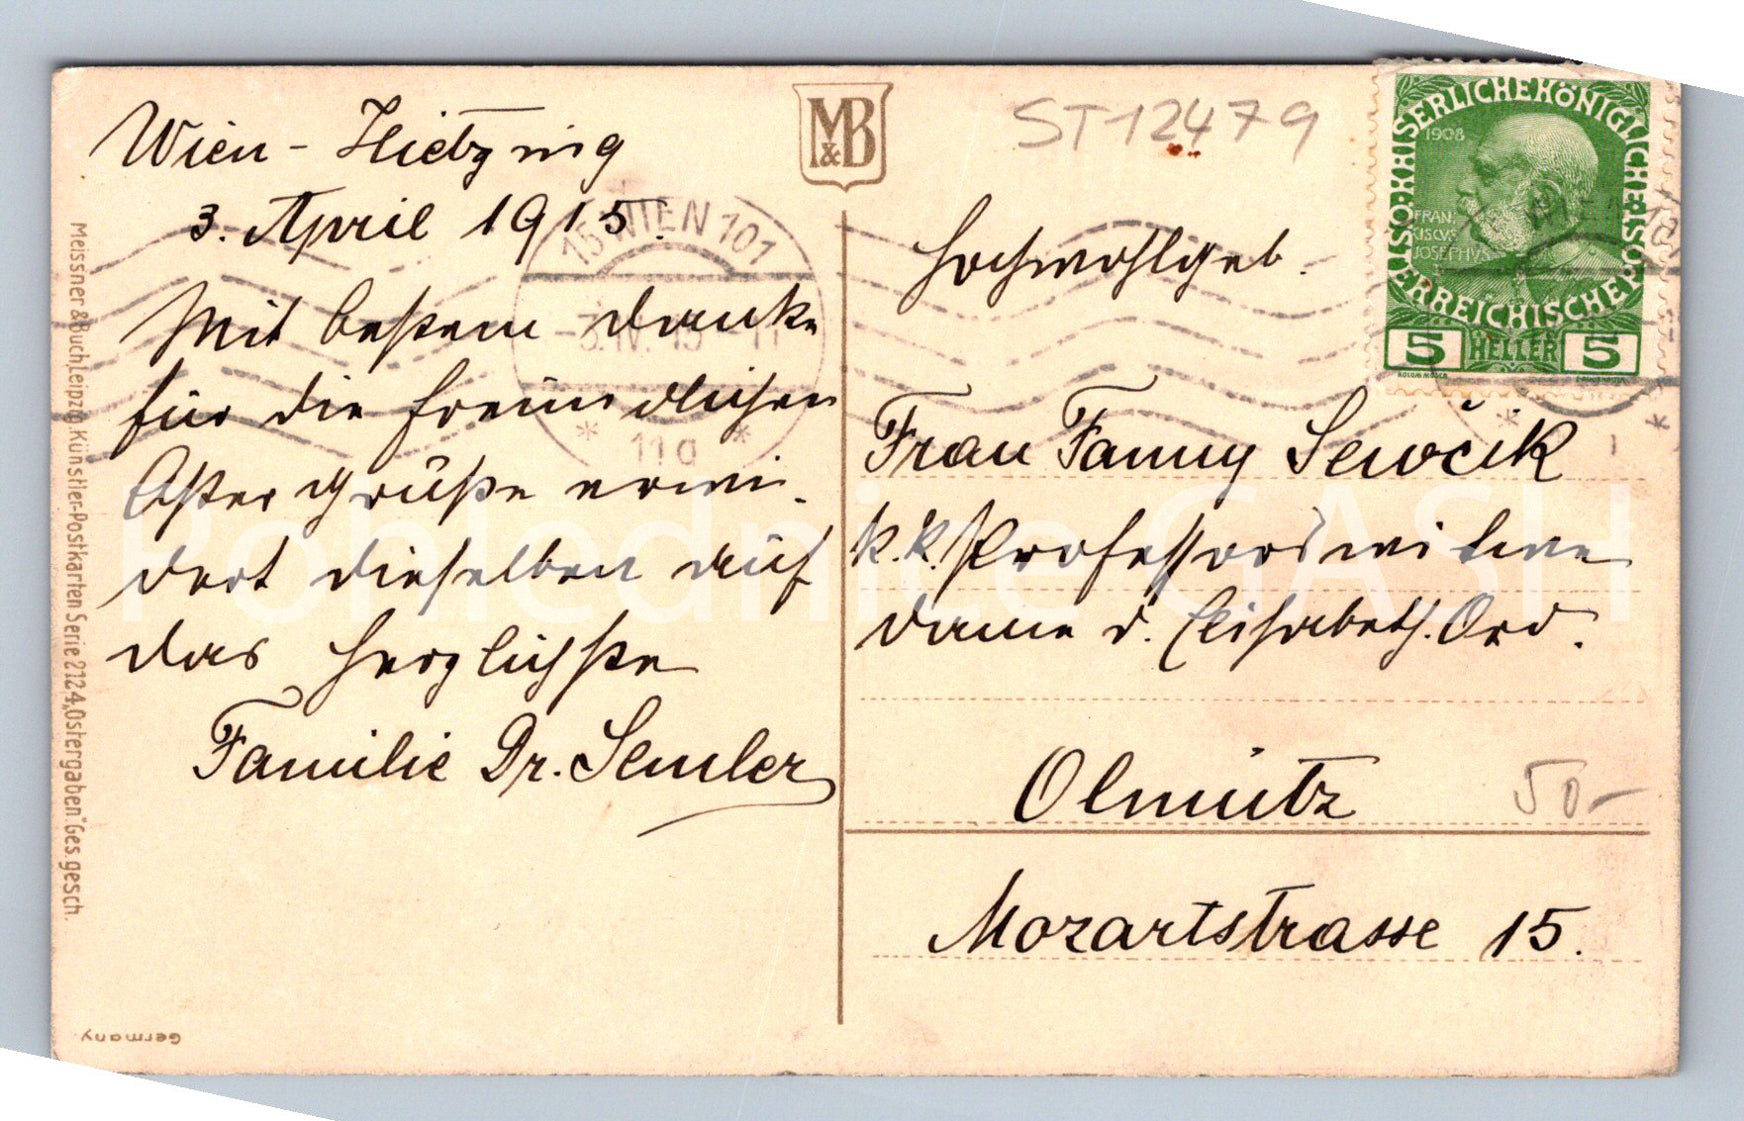 Wien - Hietzing
3. April 1915.
Mit bestem Danke
für die freundlichen
Ostergrüße erwi-
dert dieselben auf
das herzlichste
Familie Dr. Semler
M&B
ST12479
Hochwohlgeb.
Frau Fanny Sewčik
k. k. Professorswitwe
Dame d. Elisabeth. Ord.
Olmütz
50-
Mozartstrasse 15.
KAISERLICHEKÖNIGLICHE
ÖSTERREICHISCHE POST
1908
FRAN.
CISCVS
JOSEPHVS
5 HELLER 5
15 WIEN 101
3.IV.15-11
* 11a *
Meissner & Buch, Leipzig. Künstler-Postkarten Serie 2124, „Ostergaben." Ges. gesch.
Germany
Pohlednice GASH